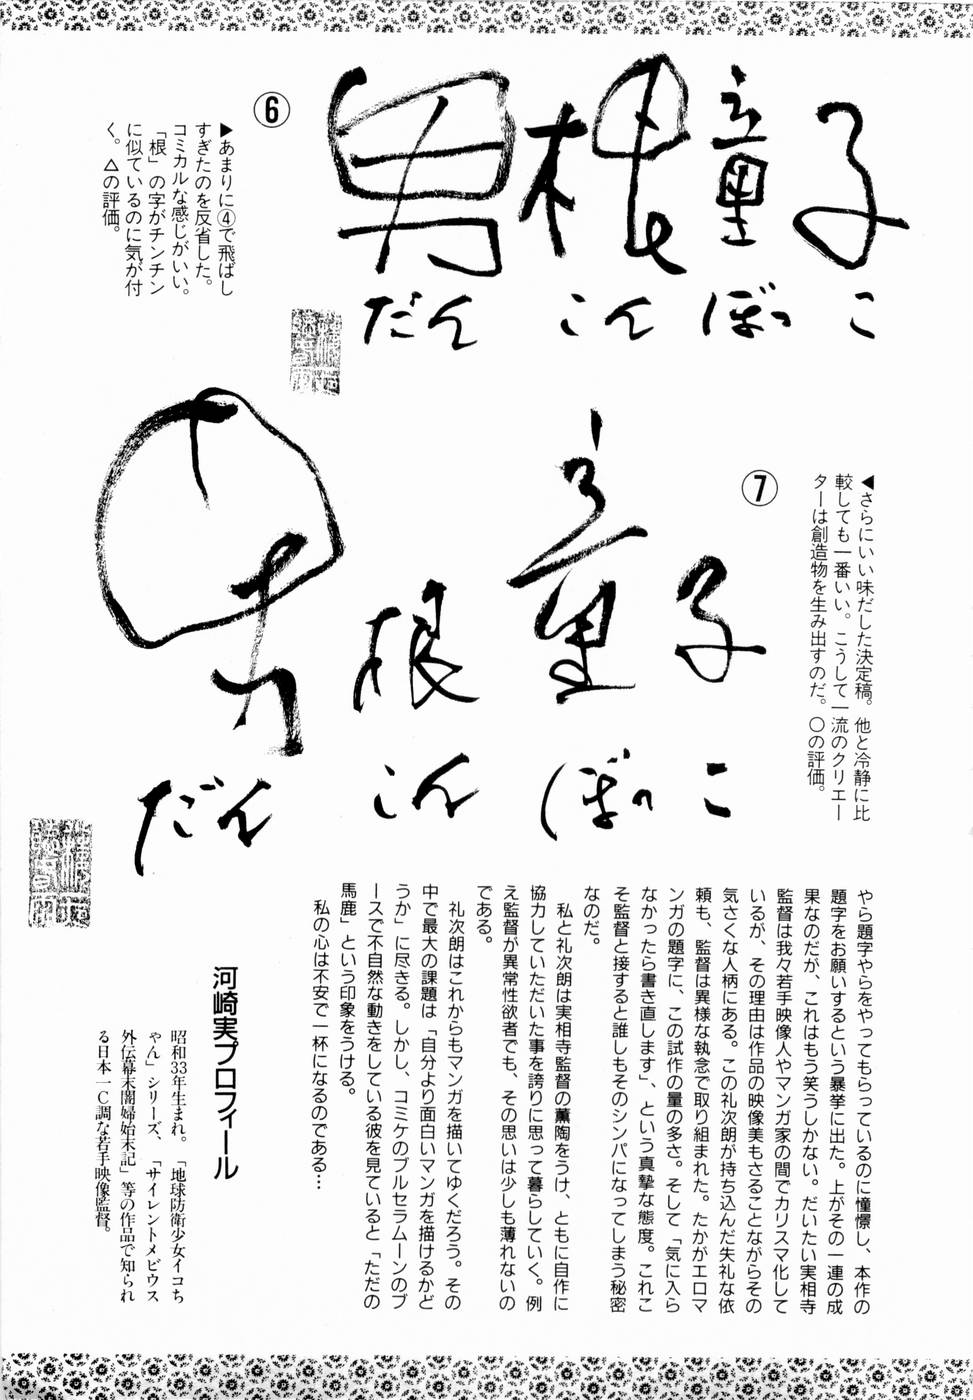 ⑥
男根童子
だんこんぼっこ
▶あまりに④で飛ばし
すぎたのを反省した。
コミカルな感じがいい。
「根」の字がチンチン
に似ているのに気が付
く。△の評価。
⑦
◀さらにいい味だした決定稿。他と冷静に比
較しても一番いい。こうして一流のクリエー
ターは創造物を生み出すのだ。○の評価。
男根童子
だんこんぼっこ
やら題字やらをやってもらっているのに憧憬し、本作の
題字をお願いするという暴挙に出た。上がその一連の成
果なのだが、これはもう笑うしかない。だいたい実相寺
監督は我々若手映像人やマンガ家の間でカリスマ化して
いるが、その理由は作品の映像美もさることながらその
気さくな人柄にある。この礼次朗が持ち込んだ失礼な依
頼も、監督は異様な執念で取り組まれた。たかがエロマ
ンガの題字に、この試作の量の多さ。そして「気に入ら
なかったら書き直します」、という真摯な態度。これこ
そ監督と接すると誰しもそのシンパになってしまう秘密
なのだ。
私と礼次朗は実相寺監督の薫陶をうけ、ともに自作に
協力していただいた事を誇りに思って暮らしていく。例
え監督が異常性欲者でも、その思いは少しも薄れないの
である。
礼次朗はこれからもマンガを描いてゆくだろう。その
中で最大の課題は「自分より面白いマンガを描けるかど
うか」に尽きる。しかし、コミケのブルセラムーンのブ
ースで不自然な動きをしている彼を見ていると「ただの
馬鹿」という印象をうける。
私の心は不安で一杯になるのである…
河崎実プロフィール
昭和33年生まれ。「地球防衛少女イコち
ゃん」シリーズ、「サイレントメビウス
外伝幕末闇婦始末記」等の作品で知られ
る日本一C調な若手映像監督。